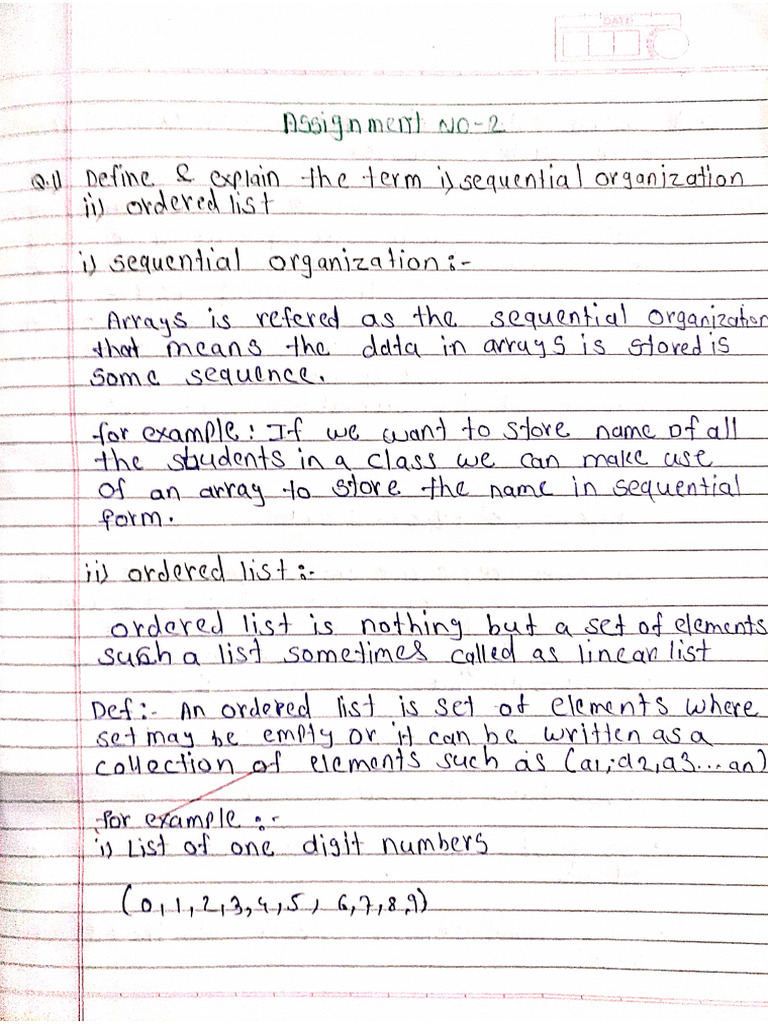 DATE
Assignment NO-2
Q.1) Define & explain the term i) sequential organization
ii) ordered list
i) sequential organization :-
Arrays is refered as the sequential organization
that means the data in arrays is stored is
some sequence.
for example : If we want to store name of all
the students in a class we can make use
of an array to store the name in sequential
form.
ii) ordered list :-
ordered list is nothing but a set of elements
such a list sometimes called as linear list
Def :- An ordered list is set of elements where
set may be empty or it can be written as a
collection of elements such as (a1, a2, a3...an)
for example :-
i) List of one digit numbers
(0,1,2,3,4,5, 6,7,8,9)